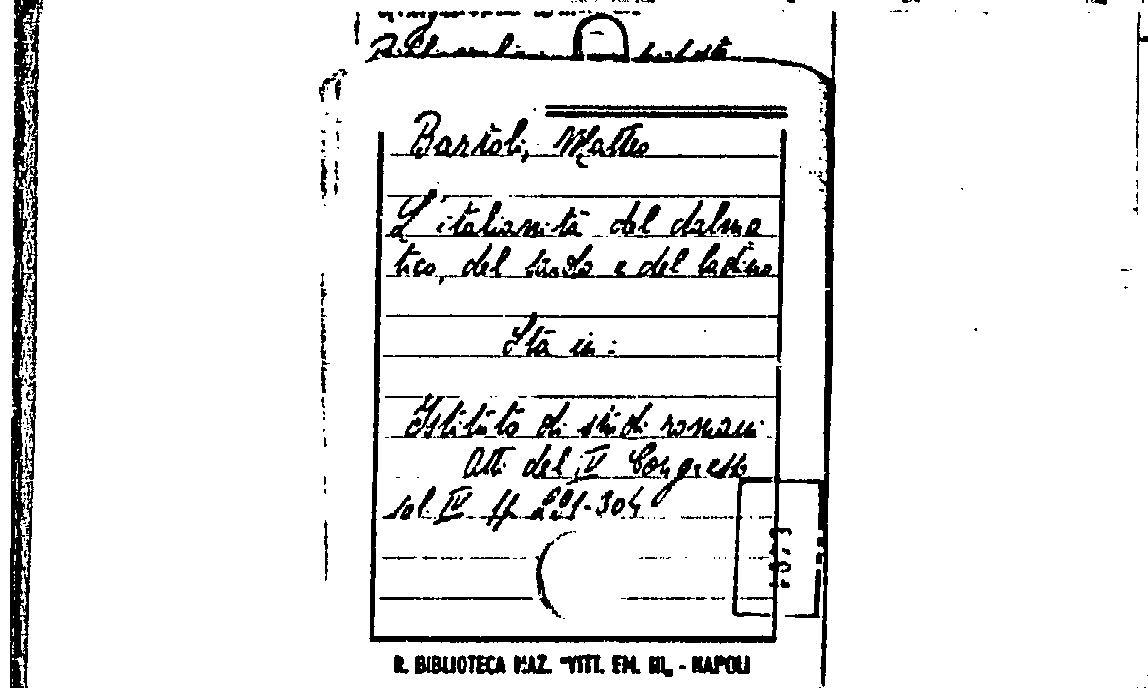 Bartoli, Matteo
L'italianità del dalma
tico, del sardo e del ladino
Sta in:
Istituto di studi romani
Atti del V Congresso
vol IV pp 291-304
R. BIBLIOTECA NAZ. "VITT. EM. III„ - NAPOLI